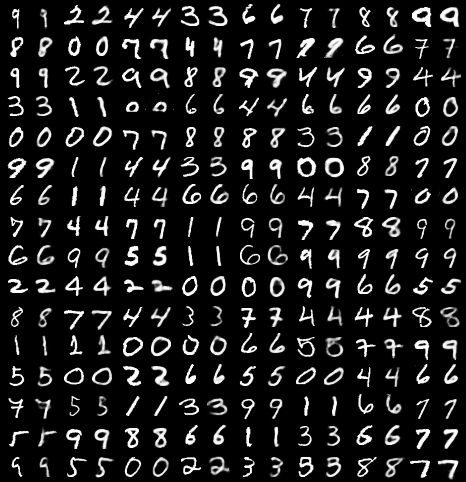 9 9 2 2 4 4 3 3 6 6 7 7 8 8 9 9
8 8 0 0 7 7 4 4 7 7 9 9 6 6 7 7
9 9 2 2 9 9 8 8 9 9 4 4 9 9 4 4
3 3 1 1 0 0 6 6 4 4 6 6 6 6 0 0
0 0 0 0 7 7 8 8 8 8 3 3 1 1 0 0
9 9 1 1 4 4 3 3 9 9 0 0 8 8 7 7
6 6 1 1 4 4 6 6 6 6 4 4 7 7 0 0
7 7 4 4 7 7 1 1 9 9 7 7 8 8 9 9
6 6 9 9 5 5 1 1 6 6 9 9 9 9 9 9
2 2 4 4 2 2 0 0 0 0 9 9 6 6 5 5
8 8 7 7 4 4 3 3 7 7 4 4 4 4 8 8
1 1 1 1 0 0 0 0 6 6 5 5 7 7 9 9
5 5 0 0 2 2 6 6 5 5 0 0 4 4 6 6
7 7 5 5 1 1 3 3 9 9 1 1 6 6 7 7
5 5 9 9 8 8 6 6 1 1 3 3 6 6 7 7
9 9 5 5 0 0 2 2 3 3 3 3 8 8 7 7